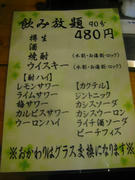 飲み放題 90分
480円
樽生
酒
焼酎 (水割・お湯割・ロック)
ウイスキー (水割・お湯割・ロック)
【酎ハイ】
レモンサワー
ライムサワー
梅サワー
カルピスサワー
ウーロンハイ
【カクテル】
ジントニック
カシスソーダ
カシスウーロン
ライチ酒ソーダ
ピーチフィズ
※おかわりはグラス交換になります※